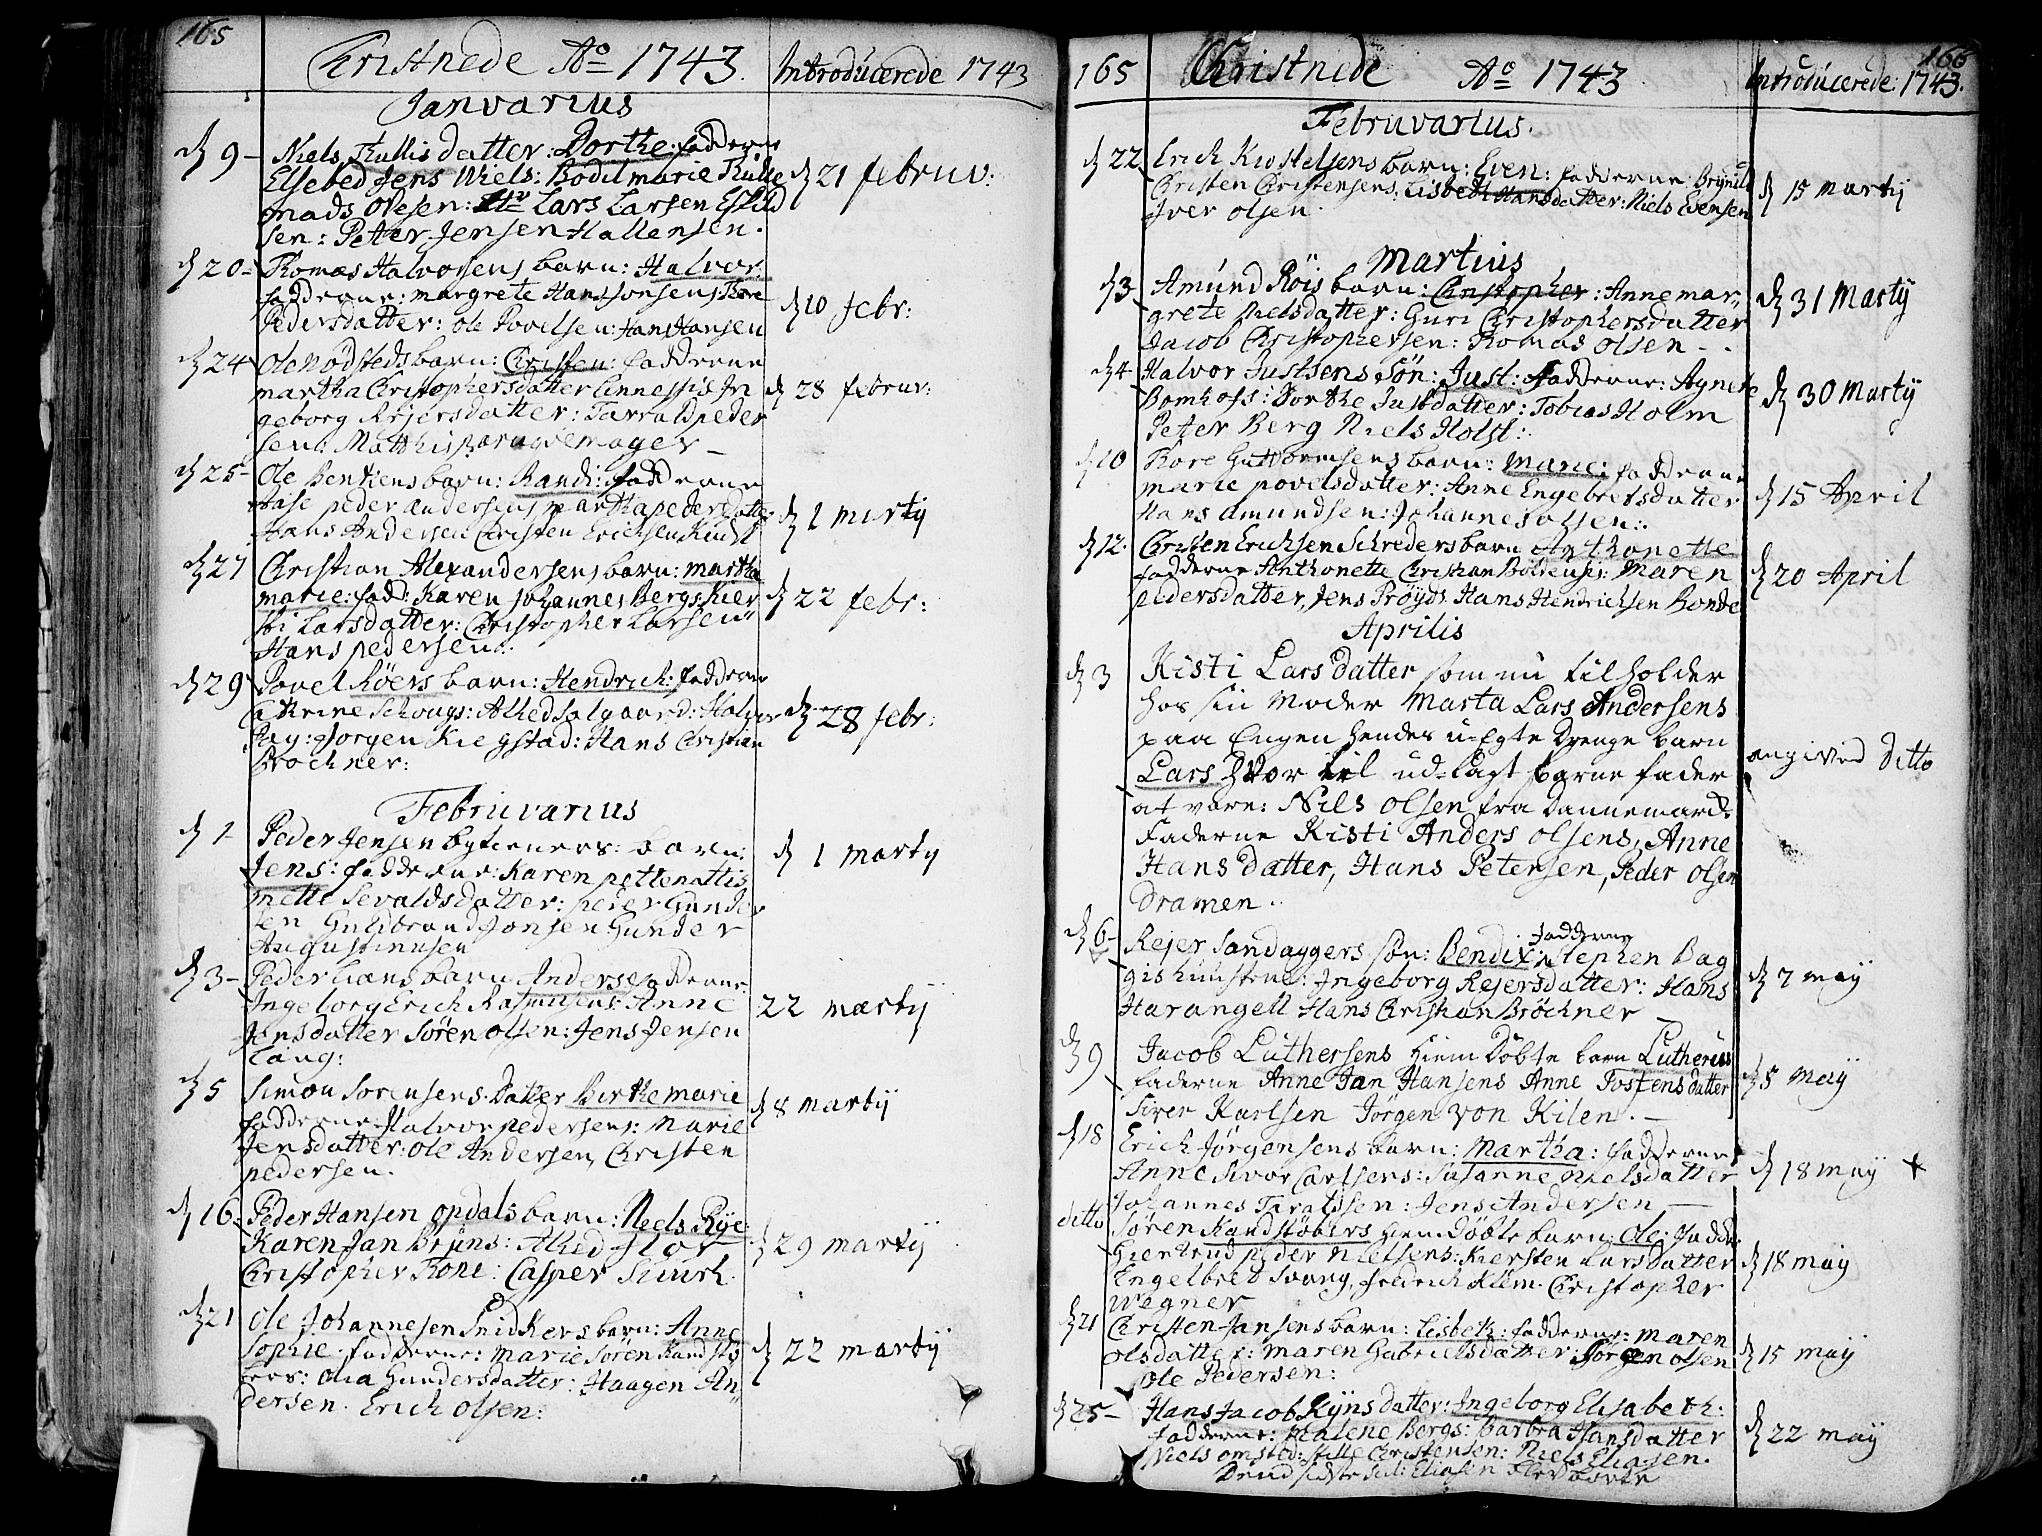 165
Christnede Aº 1743. Introducerede 1743
Janvarius
9 - Niels datter: Dorthe: fadderne
Elsebed Jens Niels: Bodil marie
mads olesen: Lars Larsen Eskild
sen: Peter Jensen Hallensen.
21 februv:
20 - Thomas Halvorsens barn: Halvor:
fadderne: margrete Hans Jonsens
Pedersdatter: ole Povelsen: Hans Hansen
10 febr:
24 barn: Christen: fadderne
martha Christophersdatter In
geborg Rejersdatter: Tarrald peder
sen: Matthis
28 februv:
25 - Ole Bentsens barn: Randi: fadderne
Aase peder andersens martha pedersdatter
Hans Andersen Christen Erichsen
1 marty
27 Christian Alexandersens barn: martha
marie: fadd: Karen Johannes Bergs Kier
sti Larsdatter: Christopher Larsen
Hans pedersen:
22 febr:
29 Povel Röers barn: Hendrich: fadderne
Cathrine Schougs: Alhed Solgaard: Halvor
: Jörgen Kiegstad: Hans Christian
Brochner:
28 febr:
Februvarius
1 - Peder Jensen barn:
Jens: fadderne: Karen
mette Sevaldsdatter: peder Gunder
sen Guldbrand Jonsen Gunder
Augustinusen
1 marty
3 - Peder barn: Anders: fadderne
Ingeborg Erich Rasmusens: Anne
Jensdatter Sören olsen: Jens Jensen
Lang:
22 martij
5 Simon Sorensens Datter Birthe marie
fadderne Halvor pedersens: Marie
Jensdatter: ole Andersen, Christen
pedersen.
8 martij
16 Peder Hansen opdals barn: Niels Rye:
Karen Jan Bruns: Alhed Flor
Christopher Rone: Casper
29 martij
21 Ole Johannesen Snidkers barn: Anne
Sophie: fadderne: marie Sören Kandstö
bers: olia Gundersdatter: Haagen An
dersen. Erich olsen:
22 martij
165 Christnede Aº 1743 Introducerede: 1743. 166
Februvarius.
22 Erich Kiostelsens barn: Even: fadderne: Brynild
Christen Christensens: Lisbeth Hansdatter: Niels Evensen
Iver olsen.
15 marty
Martius
3 Amund Röis barn: Christopher: Anne mar
grete Nielsdatter: Guri Christophersdatter
Jacob Christophersen: Thomas olsen -
31 Marty
4 Halvor Justsens Sön: Just: fadderne: Agnete
Bomhofs: Dorthe Justdatter: Tobias Holm
Peter Berg Niels Holst:
30 Marty
10 Tore Guttormsens barn: Marie: fadderne
marie povelsdatter: Anne Engebretsdatter
Hans amundsen: Johannes olsen:
15 April
12. Christen Erichsen Schreders barn Anthonette
fadderne Anthonette Christian : Maren
pedersdatter, Jens Hans Hendrichsen Bonde
20 April
Aprilis
3 Kisti Lars datter som nu til holder
hos sin Moder Marta Lars Andersens
paa Engen hendes u-Egte Drenge barn
Lars hvor til ud-lagt barne fader
at være: Nils Olsen fra Dannemarck
Faderne Kisti Anders olsens, Anne
Hans datter, Hans Petersen, Peder olsen
Dramen.
angived ditto
6 - Rejer Sandaggers sön: Bendix fadderne Stephen Bag
: Ingeborg Rejersdatter: Hans
Harangell Hans Christian Bröchner
7 may
9 Jacob Luthersens hiem Döbte barn Lutherus
faderne Anne Jan Hansens Anne Tostens datter
Siver Karlsen Jörgen von Kilen. -
5 may
18 Erich Jörgensens barn: Martha: fadderne
Anne Sivor Carlsens: Susanne Nielsdatter
Johannes Taraldsen: Jens Andersen -
18 may +
ditto Sören Kandstöbers hiem Döbte barn: Ole: fadder
Giertrud peder Nielsens: Kiersten Larsdatter
Engelbret Svang, fredrich Klem. Christopher
Wegner
18 may
21 Christen Jansens barn: Lisbeth: fadderne: Maren
olsdatter: maren Gabrielsdatter: Jörgen olsen
Ole Pedersen:
15 may
25 - Hans Jacob Ryns datter: Ingeborg Elisabeth:
fadderne: Malene Bergs: Barbra Hansdatter
Niels omsted: Christensen: Niels Eliasen.
22 may